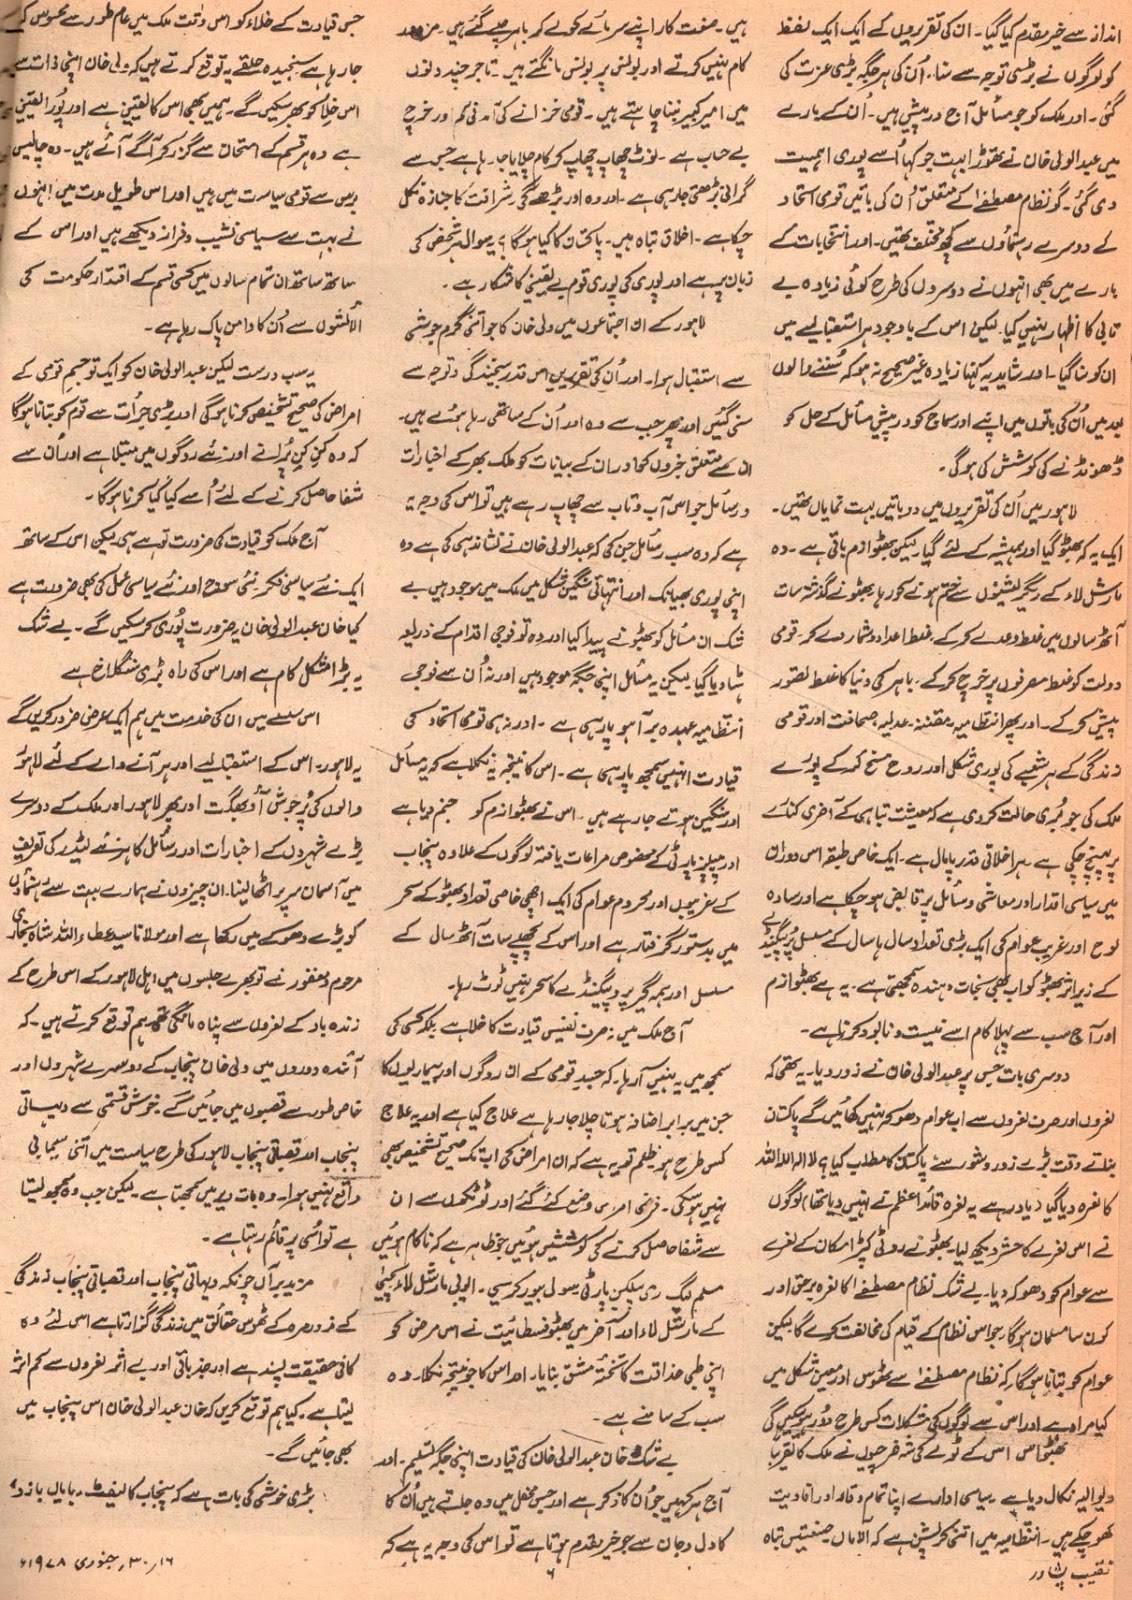 انداز سے خیر مقدم کیا گیا۔ ان کی تقریروں کے ایک ایک لفظ
کو لوگوں نے بڑی توجہ سے سنا۔ اُن کی ہر جگہ بڑی عزت کی
گئی۔ اور ملک کو جو مسائل آج درپیش ہیں۔ اُن کے بارے
میں عبدالولی خان نے تھوڑا بہت جو کہا اُسے پوری اہمیت
دی گئی۔ گو نظام مصطفےٰ کے متعلق اُن کی باتیں قومی اتحاد
کے دوسرے رہنماؤں سے کچھ مختلف تھیں۔ اور انتخابات کے
بارے میں بھی انہوں نے دوسروں کی طرح کوئی زیادہ بے
تابی کا اظہار نہیں کیا۔ لیکن اس کے باوجود ہر استقبالیے میں
ان کو سنا گیا۔ اور شاید یہ کہنا زیادہ غیر صحیح نہ ہو کہ سننے والوں
بعد میں اُن کی باتوں میں اپنے اور سماج کو درپیش مسائل کے حل کو
ڈھونڈنے کی کوشش کی ہوگی۔
لاہور میں اُن کی تقریروں میں دو باتیں بہت نمایاں تھیں۔
ایک یہ کہ بھٹو گیا اور ہمیشہ کے لئے گیا لیکن بھٹو ازم باقی ہے۔ وہ
مارشل لاء کے ریگولیشنوں سے ختم ہونے کو رہا۔ بھٹو نے گذشتہ سات
آٹھ سالوں میں غلط وعدے کر کے۔ غلط اعداد و شمار دے کر۔ قومی
دولت کو غلط مصرفوں پر خرچ کر کے۔ باہر کی دنیا کا غلط تصور
پیش کر کے۔ اور پھر انتظامیہ، مقننہ، عدلیہ، صحافت اور قومی
زندگی کے ہر شعبے کی پوری شکل اور روح مسخ کر کے پورے
ملک کی جو بُری حالت کر دی ہے کہ معیشت تباہی کے آخری کنارے
پر پہنچ چکی ہے۔ ہر اخلاقی قدر پامال ہے۔ ایک خاص طبقہ اس دوران
میں سیاسی اقتدار اور معاشی وسائل پر قابض ہو چکا ہے اور سادہ
لوح اور غریب عوام کی ایک بڑی تعداد سال ہا سال کے مسلسل پروپیگنڈے
کے زیر اثر بھٹو کو اب بھی نجات دہندہ سمجھتی ہے۔ یہ ہے بھٹو ازم
اور آج سب سے پہلا کام اسے نیست و نابود کرنا ہے۔
دوسری بات جس پر عبدالولی خان نے زور دیا۔ یہ تھی کہ
نعروں اور صرف نعروں سے اب عوام دھوکہ نہیں کھائیں گے پاکستان
بنانے وقت بڑے زور و شور سے پاکستان کا مطلب کیا؟ لا الہ الا اللہ
کا نعرہ دیا گیا (یاد رہے یہ نعرہ قائداعظم نے نہیں دیا تھا) لوگوں
نے اس نعرے کا حشر دیکھ لیا۔ بھٹو نے روٹی کپڑا مکان کے نعرے
سے عوام کو دھوکہ دیا۔ بے شک نظام مصطفےٰ کا نعرہ برحق اور
کون سا مسلمان ہوگا۔ جو اس نظام کے قیام کی مخالفت کرے گا لیکن
عوام کو بتانا ہوگا کہ نظام مصطفےٰ سے ٹھوس اور معین شکل میں
کیا مراد ہے اور اس سے لوگوں کی مشکلات کس طرح دُور ہو سکیں گی
بھٹو اس کے ٹولے کی شہ خرچیوں نے ملک کا تقریباً
دیوالیہ نکال دیا ہے۔ سیاسی ادارے اپنا تمام وقار اور افادیت
کھو چکے ہیں۔ انتظامیہ میں اتنی کرپشن ہے کہ الاماں۔ صنعتیں تباہ
ہیں۔ صنعت کار اپنے سرمائے کو لے کر باہر جا چکے ہیں۔ مزدور
کام نہیں کرتے اور بونس پر بونس مانگتے ہیں۔ تاجر چند دنوں
میں امیر کبیر بننا چاہتے ہیں۔ قومی خزانے کی آمدنی کم اور خرچ
بے حساب ہے۔ نوٹ چھاپ چھاپ کر کام چلایا جا رہا ہے جس سے
گرانی بڑھتی جا رہی ہے۔ اور وہ اور بڑھے گی۔ شرافت کا جنازہ نکل
چکا ہے۔ اخلاق تباہ ہیں۔ پاکستان کا کیا ہوگا؟ یہ سوال ہر شخص کی
زبان پر ہے اور پوری کی پوری قوم بے یقینی کا شکار ہے۔
لاہور کے ان اجتماعوں میں ولی خان کا جو اتنی گرم جوشی
سے استقبال ہوا۔ اور اُن کی تقریریں اس قدر سنجیدگی و توجہ سے
سنی گئیں اور پھر جب سے وہ اور اُن کے ساتھی رہا ہوئے ہیں۔
ان سے متعلق خبروں کو اور ان کے بیانات کو ملک بھر کے اخبارات
و رسائل جو اس آب و تاب سے چھاپ رہے ہیں تو اس کی وجہ یہ
ہے کہ وہ سب مسائل جن کی کہ عبدالولی خان نے نشاندہی کی ہے وہ
اپنی پوری بھیانک اور انتہائی سنگین شکل میں ملک میں موجود ہیں بے
شک ان مسائل کو بھٹو نے پیدا کیا اور وہ تو فوجی اقدام کے ذریعہ
ہٹا دیا گیا۔ لیکن یہ مسائل اپنی جگہ موجود ہیں اور نہ اُن سے فوجی
انتظامیہ عہدہ برآ ہو پا رہی ہے۔ اور نہ ہی قومی اتحاد کی
قیادت انہیں سمجھ پا رہی ہے۔ اس کا نتیجہ یہ نکلا ہے کہ یہ مسائل
اور سنگین ہوتے جا رہے ہیں۔ اس نے بھٹو ازم کو جنم دیا ہے
اور پیپلز پارٹی کے مخصوص مراعات یافتہ لوگوں کے علاوہ پنجاب
کے غریبوں اور محروم عوام کی ایک اچھی خاصی تعداد بھٹو کے سحر
میں بدستور گرفتار ہے اور اس کے پچھلے سات آٹھ سال کے
مسلسل اور ہمہ گیر پروپیگنڈے کا سحر نہیں ٹوٹ رہا۔
آج ملک میں نہ صرف نفیس قیادت کا خلا ہے بلکہ کسی کی
سمجھ میں یہ نہیں آ رہا کہ جسد قومی کے ان روگوں اور بیماریوں کا
جن میں برابر اضافہ ہوتا چلا جا رہا ہے علاج کیا ہے اور یہ علاج
کس طرح ہو۔ ظلم تو یہ ہے کہ ان امراض کی اب تک صحیح تشخیص بھی
نہیں ہو سکی۔ فرضی امراض وضع کئے گئے اور ٹوٹکوں سے ان
سے شفا حاصل کرنے کی کوششیں ہوئیں جو ظاہر ہے کہ ناکام ہوئیں
مسلم لیگ ری پبلیکن پارٹی سول بیوروکریسی۔ ایوبی مارشل لاء یحییٰ
کے مارشل لاء اور آخر میں بھٹو فسطائیت نے اس مرض کو
اپنی طبی حذاقت کا تختۂ مشق بنایا۔ اور اس کا جو نتیجہ نکلا۔ وہ
سب کے سامنے ہے۔
بے شک خان عبدالولی خان کی قیادت اپنی جگہ تسلیم۔ اور
آج ہر کہیں جو اُن کا ذکر ہے اور جس محفل میں وہ جاتے ہیں اُن کا
کا دل و جان سے جو خیر مقدم ہوتا ہے تو اس کی وجہ یہ ہے کہ
جس قیادت کے خلاء کو اس وقت ملک میں عام طور سے محسوس کیا
جا رہا ہے سنجیدہ حلقے یہ توقع کرتے ہیں کہ ولی خان اپنی ذات سے
اس خلا کو بھر سکیں گے۔ ہمیں بھی اس کا یقین ہے اور پُورا یقین
ہے وہ ہر قسم کے امتحان سے گزر کر آگے آئے ہیں۔ وہ چالیس
برس سے قومی سیاست میں ہیں اور اس طویل مدت میں انہوں
نے بہت سے سیاسی نشیب و فراز دیکھے ہیں اور اس کے
ساتھ ساتھ ان تمام سالوں میں کسی قسم کے اقتدار حکومت کی
آلائشوں سے اُن کا دامن پاک رہا ہے۔
یہ سب درست لیکن عبدالولی خان کو ایک تو جسم قومی کے
امراض کی صحیح تشخیص کرنا ہوگی اور بڑی جرأت سے قوم کو بتانا ہوگا
کہ وہ کن کن پُرانے اور نئے روگوں میں مبتلا ہے اور اُن سے
شفا حاصل کرنے کے لئے اُسے کیا کیا کرنا ہوگا۔
آج ملک کو قیادت کی ضرورت تو ہے ہی لیکن اس کے ساتھ
ایک نئے سیاسی فکر، نئی سوچ اور نئے سیاسی عمل کی بھی ضرورت ہے
کیا خان عبدالولی خان یہ ضرورت پُوری کر سکیں گے۔ بے شک
یہ بڑا مشکل کام ہے اور اس کی راہ بڑی سنگلاخ ہے
اس سلسلے میں ان کی خدمت میں ہم ایک عرض ضرور کریں گے
یہ لاہور۔ اس کے استقبالیے اور ہر آنے والے کے لئے لاہور
والوں کی پُرجوش آؤ بھگت اور پھر لاہور اور ملک کے دوسرے
بڑے شہروں کے اخبارات اور رسائل کا ہر نئے لیڈر کی تعریف
میں آسمان سر پر اٹھا لینا۔ ان چیزوں نے ہمارے بہت سے رہنماؤں
کو بڑے دھوکے میں رکھا ہے اور مولانا سید عطاء اللہ شاہ بخاری
مرحوم و مغفور نے تو بھرے جلسوں میں اہل لاہور کے اس طرح کے
زندہ باد کے نعروں سے پناہ مانگی تھی ہم توقع کرتے ہیں۔ کہ
آئندہ دوروں میں ولی خان پنجاب کے دوسرے شہروں اور
خاص طور سے قصبوں میں جائیں گے۔ خوش قسمتی سے دیہاتی
پنجاب اور قصباتی پنجاب لاہور کی طرح سیاست میں اتنی سیمابی
واقع نہیں ہوا۔ وہ بات دیر میں سمجھتا ہے۔ لیکن جب وہ سمجھ لیتا
ہے تو اُسی پر قائم رہتا ہے۔
مزید برآں چونکہ دیہاتی پنجاب اور قصباتی پنجاب زندگی
کے روزمرہ کے ٹھوس حقائق میں زندگی گزارتا ہے اسی لئے وہ
کافی حقیقت پسند ہے اور جذباتی اور بے اثر نعروں سے کم اثر
لیتا ہے۔ کیا ہم توقع کریں کہ خان عبدالولی خان اس پنجاب میں
بھی جائیں گے۔
بڑی خوشی کی بات ہے کہ پنجاب کا لیفٹ۔ بایاں بازو،
نقیب پشاور
۶
۱۶ر۔۳۰، جنوری ۱۹۷۸ء